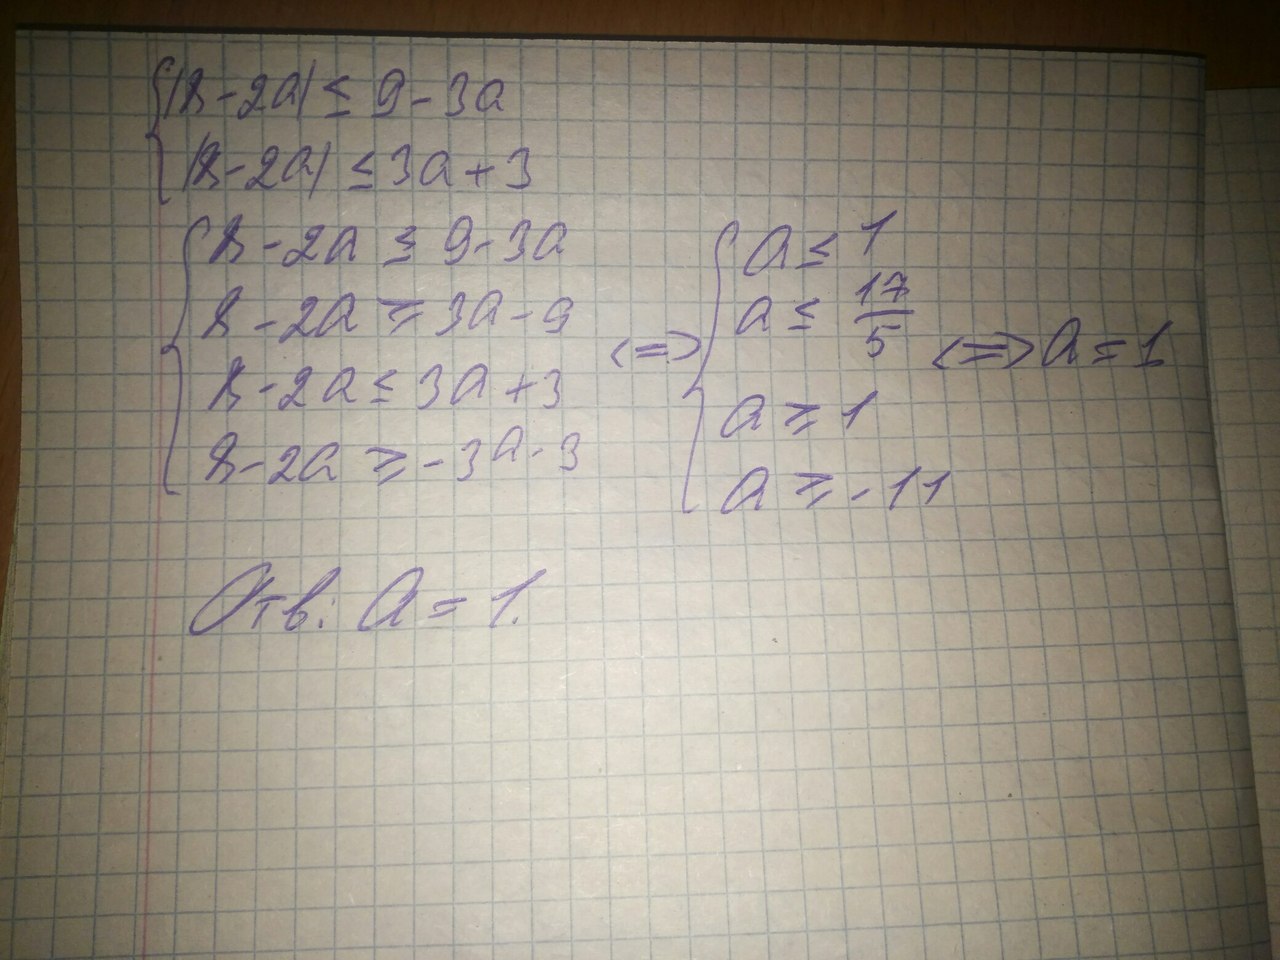 |8-2a| ≤ 9-3a
|8-2a| ≤ 3a+3
8-2a ≤ 9-3a
8-2a ≥ 3a-9
8-2a ≤ 3a+3
8-2a ≥ -3a-3
<=>
a ≤ 1
a ≤ 17/5
a ≥ 1
a ≥ -11
<=> a = 1
Отв: a = 1.